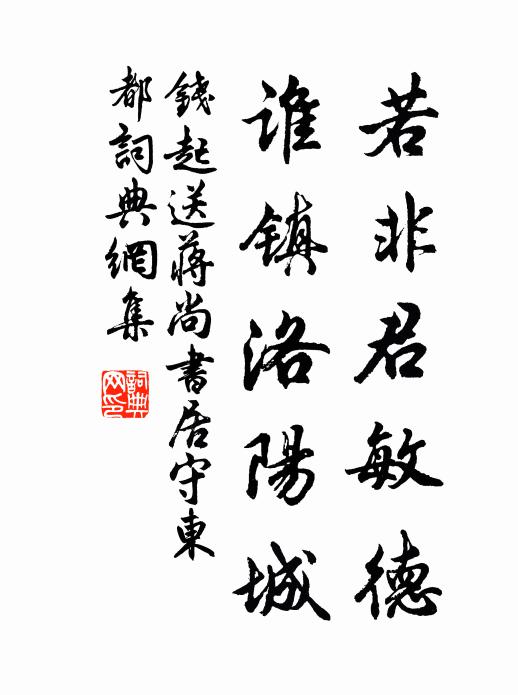 若非君敏德
谁镇洛陽城
錢起送蔣尚書居守東
都詞典網集
詞典
网印